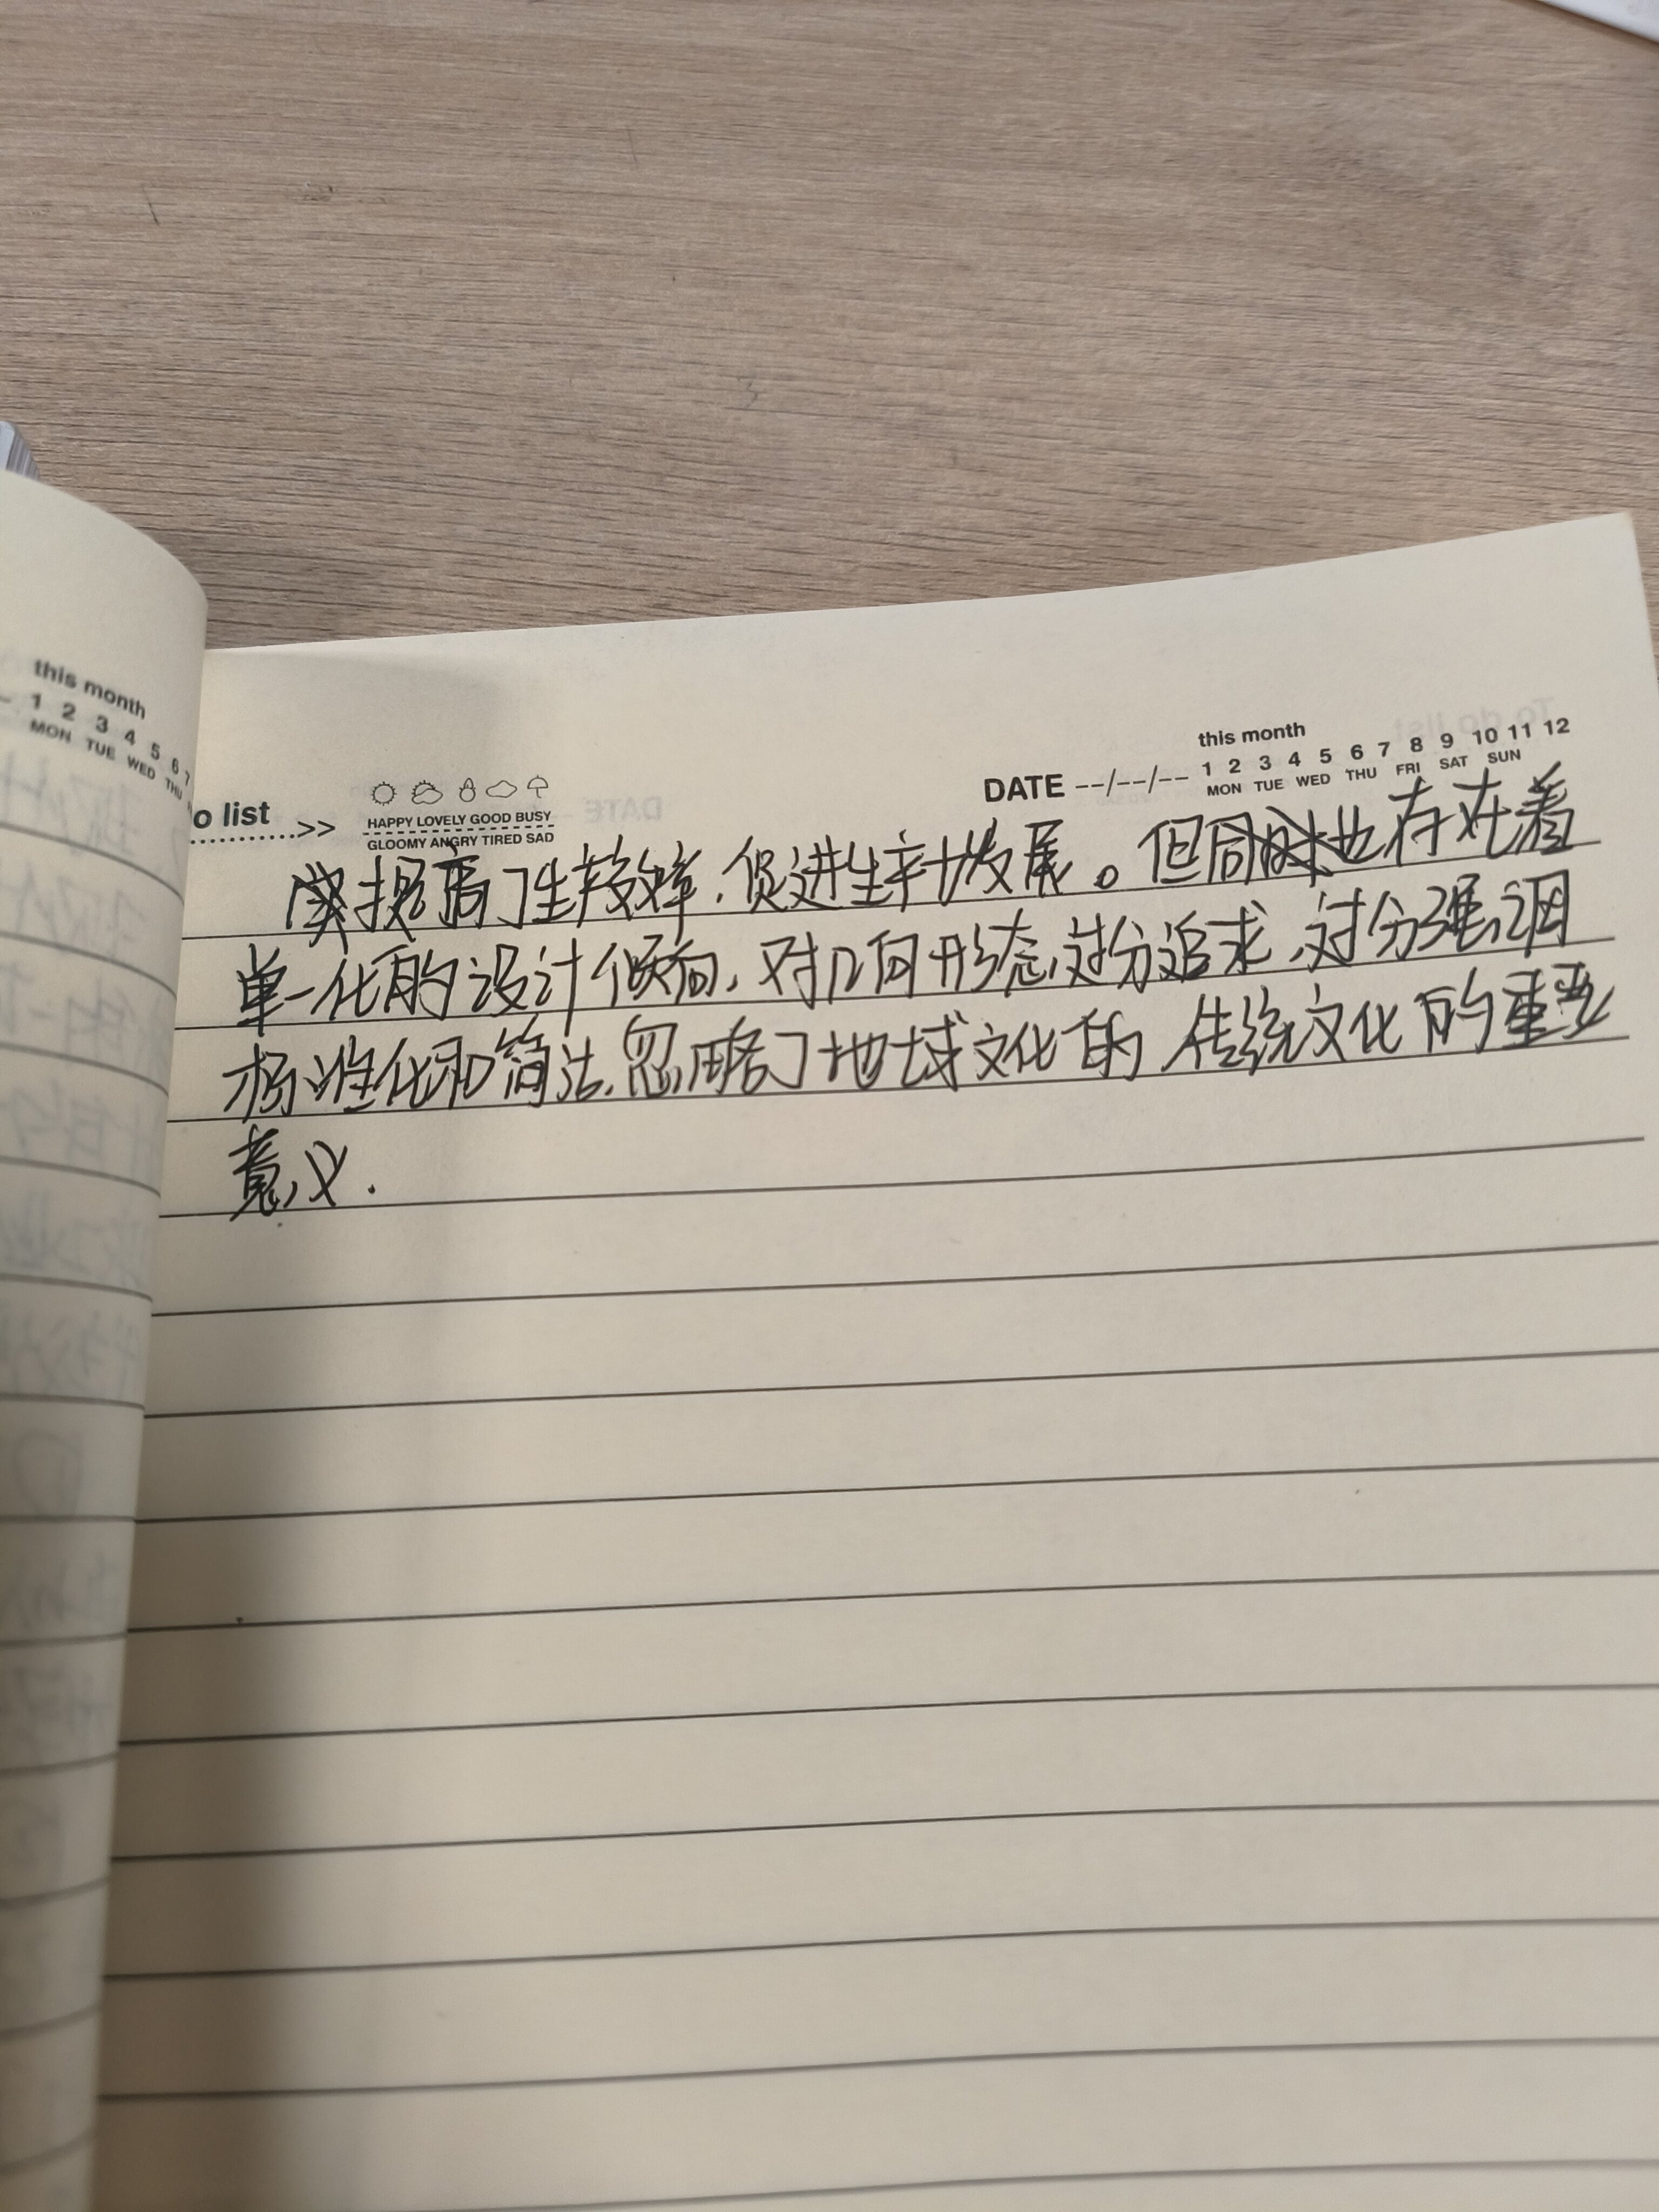 this month
1 2 3 4 5 6 7
MON TUE WED THU
o list >>
HAPPY LOVELY GOOD BUSY
GLOOMY ANGRY TIRED SAD
DATE --/--/--
this month
1 2 3 4 5 6 7 8 9 10 11 12
MON TUE WED THU FRI SAT SUN
提高了生产效率,促进生产力发展。但同时也存在着
单一化的设计倾向,对几何形态过分追求,过分强调
标准化和简洁,忽略了地域文化的 传统文化的重要
意义.